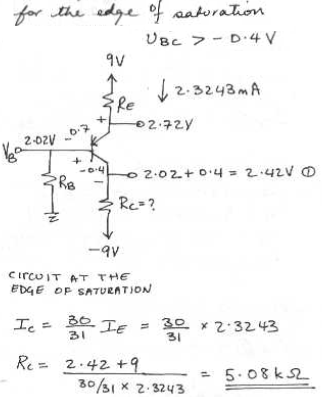 for the edge of saturation
UBC > - 0.4 V
9V
RE
2.3243mA
+
2.72V
VB
2.02V
- 0.7
+
-0.4
-
2.02 + 0.4 = 2.42V ①
RB
RC = ?
-9V
CIRCUIT AT THE
EDGE OF SATURATION
IC = 30/31 IE = 30/31 × 2.3243
RC = 2.42 + 9 / 30/31 × 2.3243 = 5.08kΩ